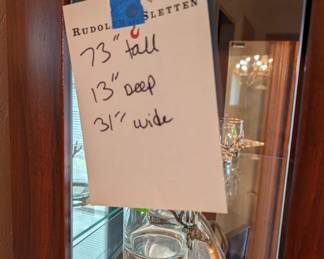 RUDOLPH SLETTEN
73" tall
13" Deep
31" wide